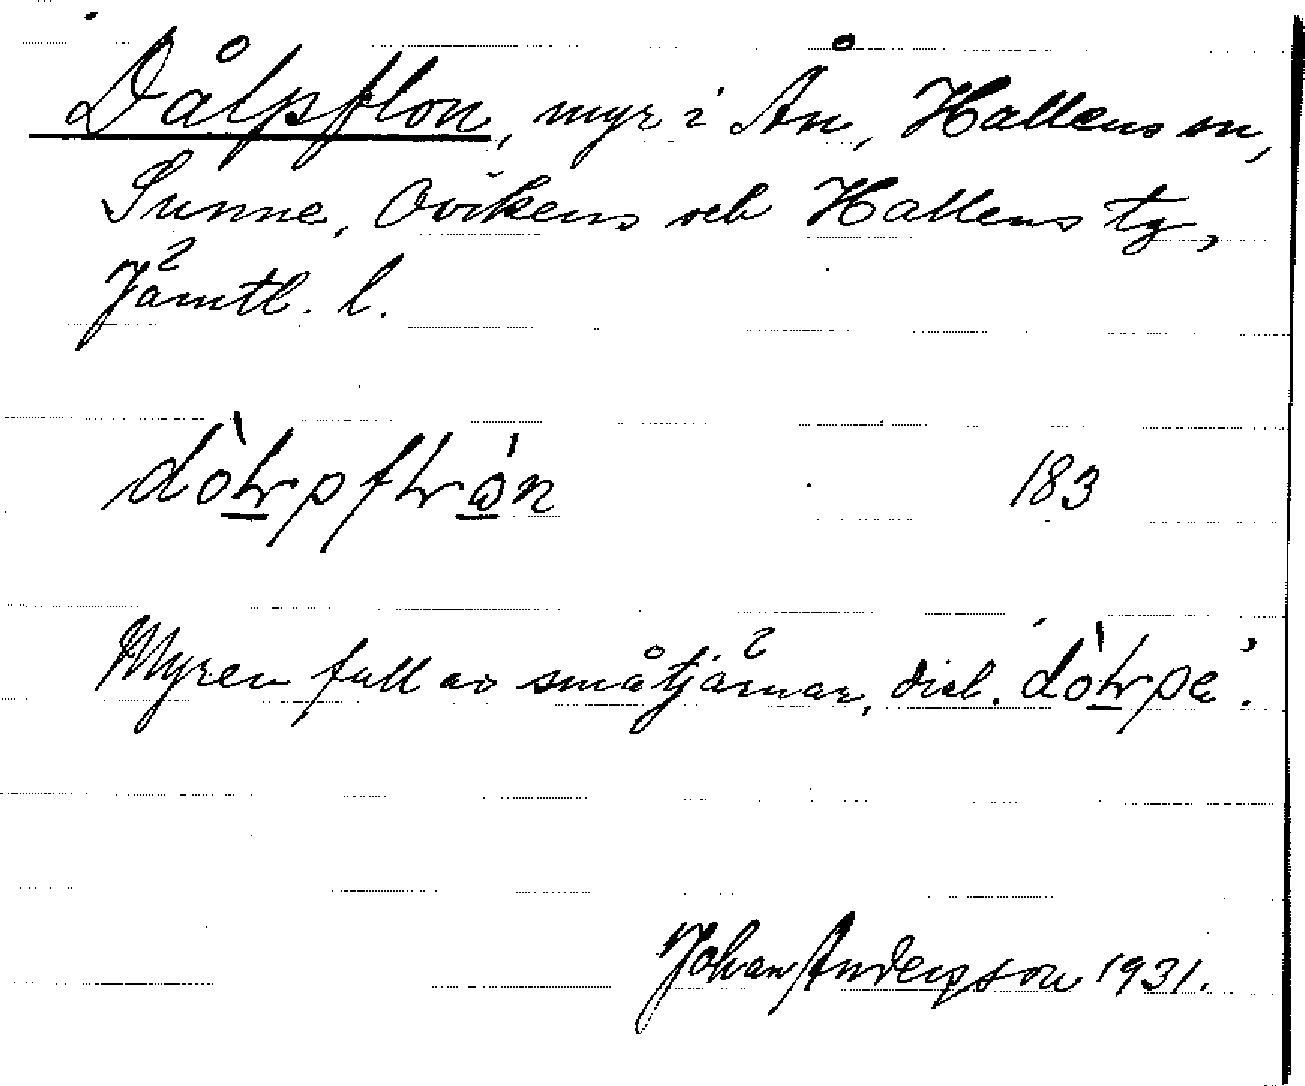 Dålpflon, myr i Ån, Hallens sn,
Sunne, Ovikens och Hallens tg,
Jämtl. l.
183
Myren full av småtjärnar, dial.
Johan Anderson 1931.